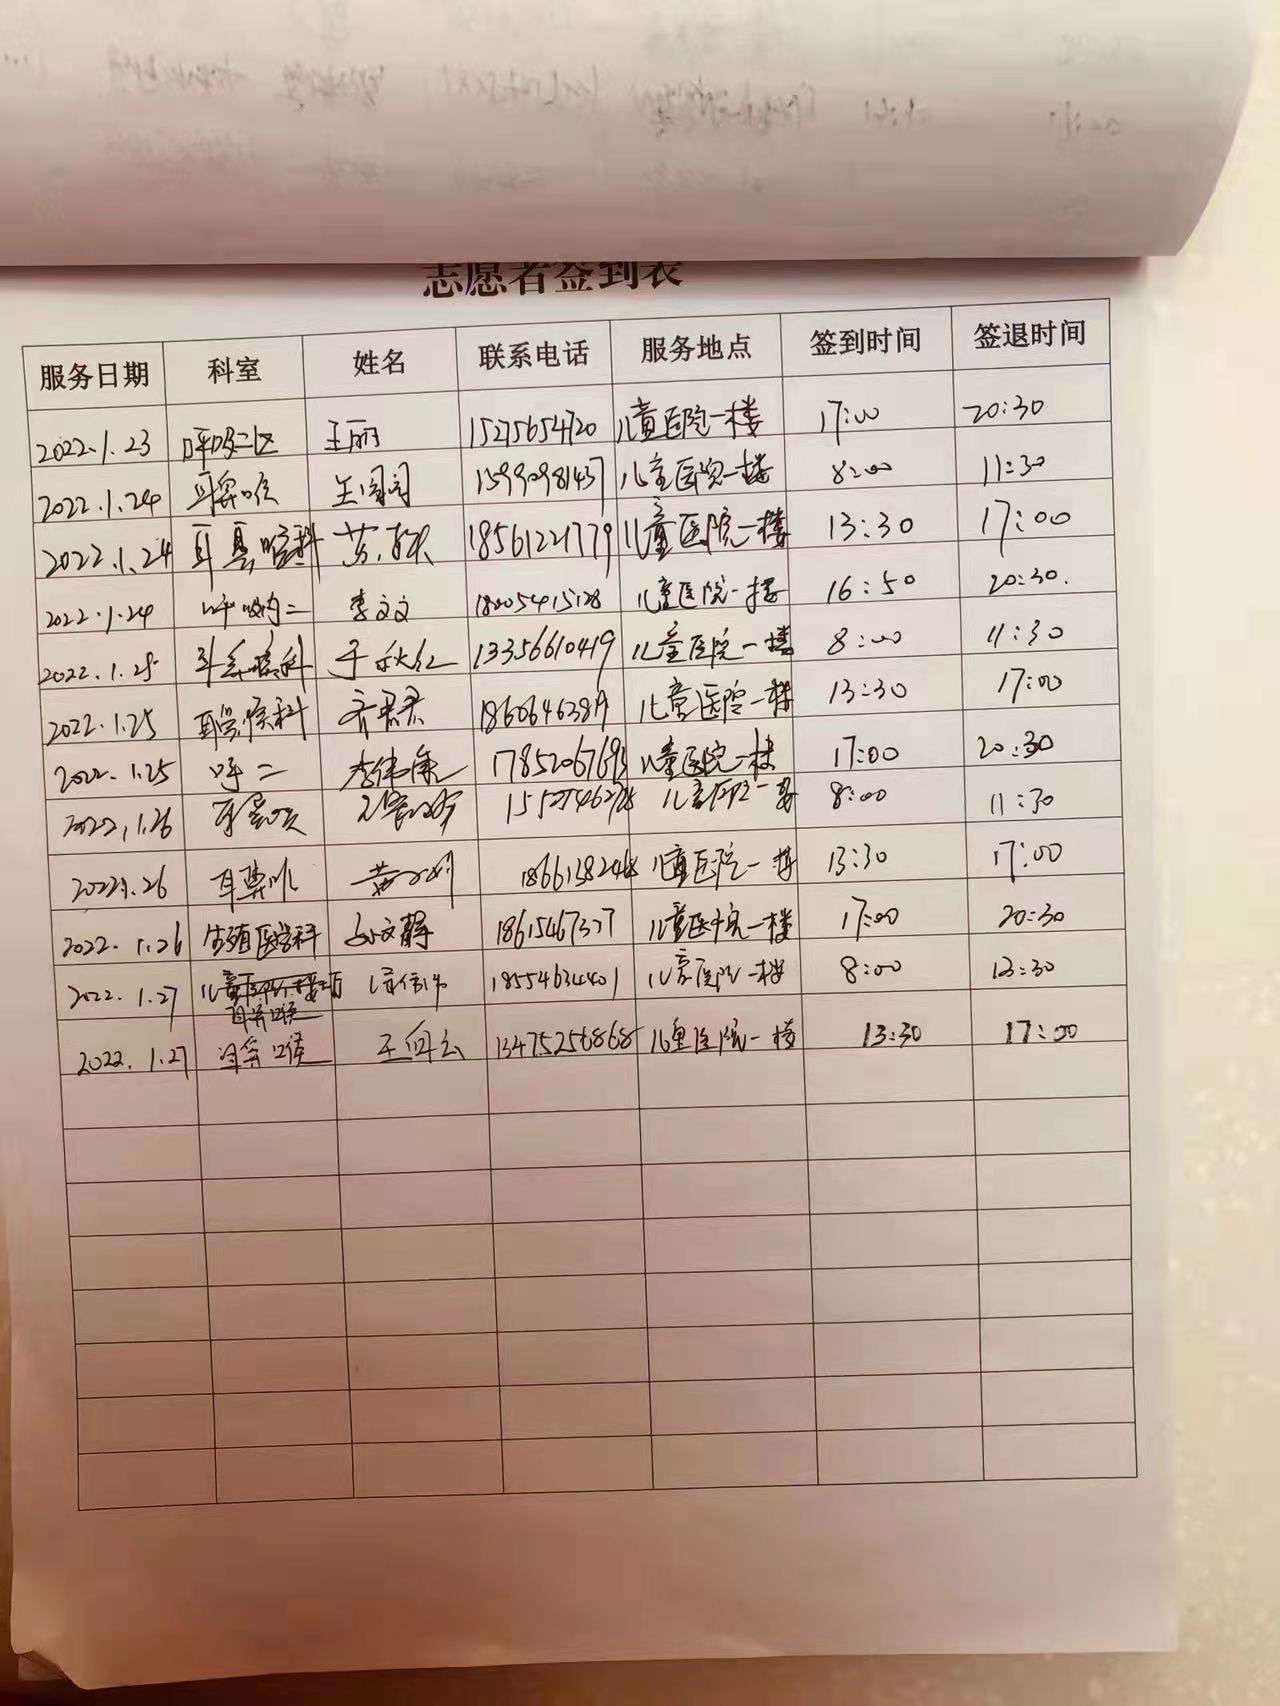 志愿者签到表
服务日期 科室 姓名 联系电话 服务地点 签到时间 签退时间
2022.1.23 呼吸二区 王丽 15275654720 儿童医院一楼 17:00 20:30
2022.1.24 耳鼻喉 王闺闺 15990981437 儿童医院一楼 8:00 11:30
2022.1.24 耳鼻喉科 18561221779 儿童医院一楼 13:30 17:00
2022.1.24 呼吸内二 李文文 18005415128 儿童医院一楼 16:50 20:30.
2022.1.25 耳鼻喉科 于秋红 13356610419 儿童医院一楼 8:00 11:30
2022.1.25 耳鼻喉科 齐君君 儿童医院一楼 13:30 17:00
2022.1.25 呼二 李伟康 17852067693 儿童医院一楼 17:00 20:30
2022.1.26 耳鼻喉 儿童医院一楼 8:00 11:30
2022.1.26 耳鼻喉 儿童医院一楼 13:30 17:00
2022.1.26 生殖医学科 文静 18615467327 儿童医院一楼 17:00 20:30
2022.1.27 耳鼻喉 18554634401 儿童医院一楼 8:00
2022.1.27 耳鼻喉 13475256868 儿童医院一楼 13:30 17:00